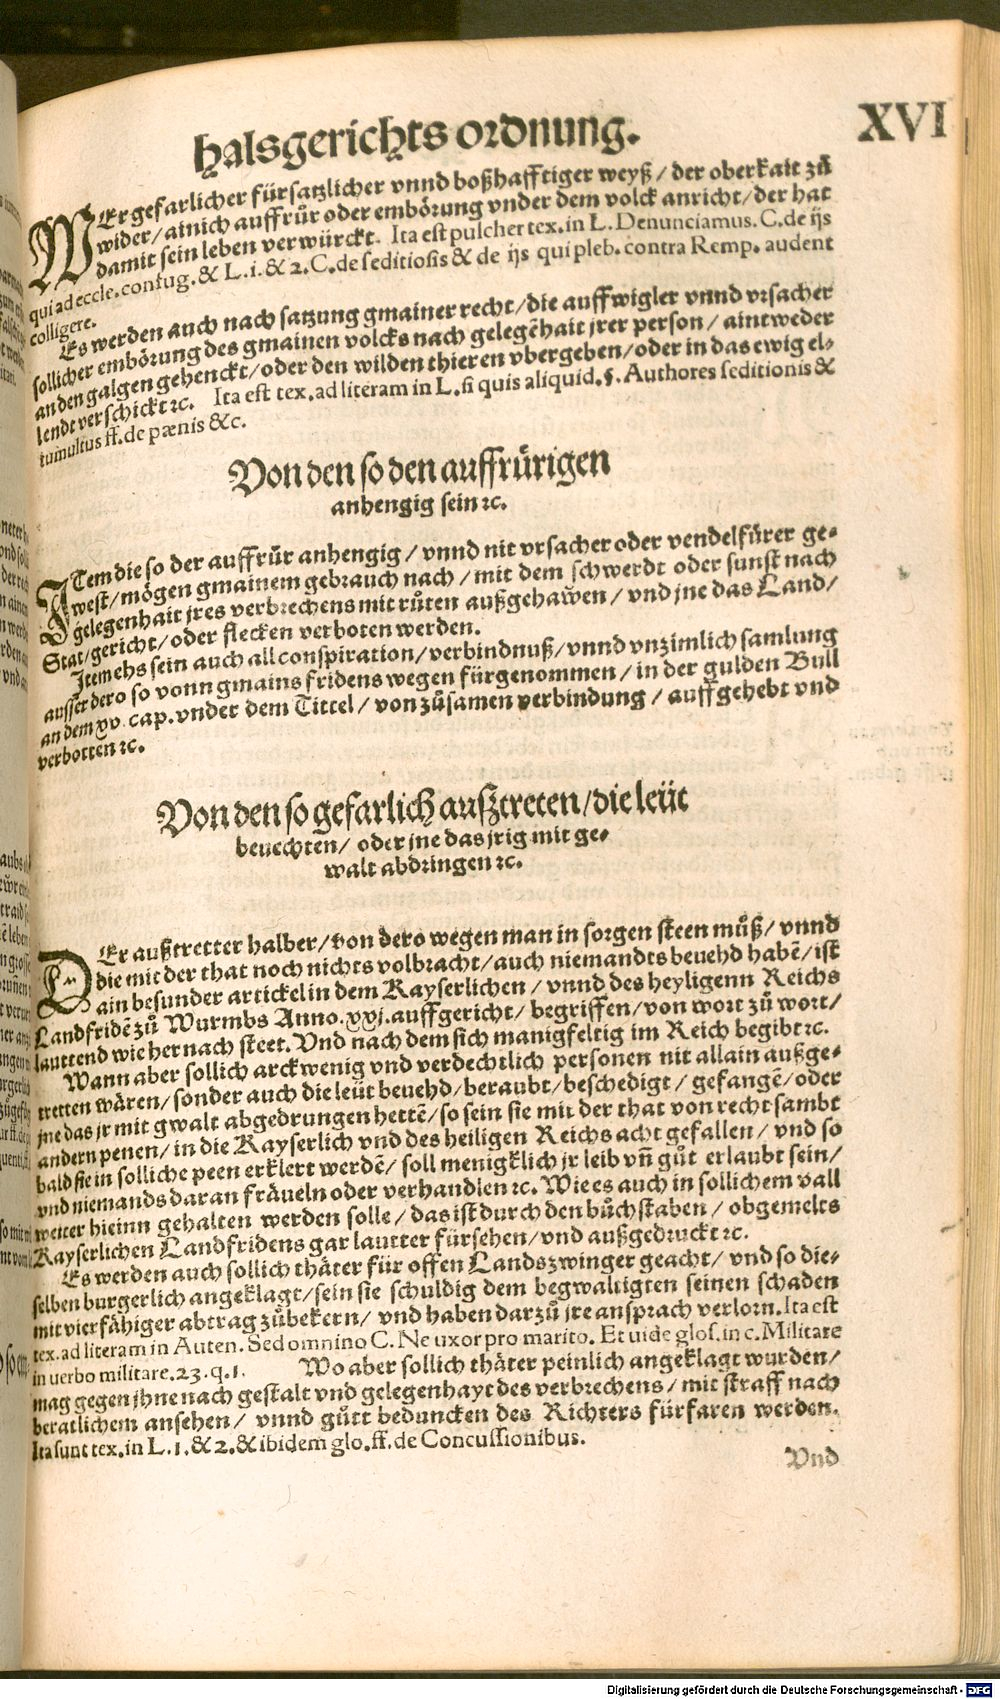 halsgerichts ordnung. XVI
WEr gefarlicher fürsatzlicher vnnd boßhafftiger weyß / der oberkait zů
wider / ainich auffrůr oder embörung vnder dem volck anricht / der hat
damit sein leben verwürckt. Ita est pulcher tex. in L. Denunciamus. C. de ijs
qui ad eccle. confug. & L. i. & 2. C. de seditiosis & de ijs qui pleb. contra Remp. audent
colligere.
Es werden auch nach satzung gmainer recht / die auffwigler vnnd vrsacher
sollicher embörung des gmainen volcks nach gelegēhait jrer person / aintweder
an den galgen gehenckt / oder den wilden thieren vbergeben / oder in das ewig el-
lendt verschickt ꝛc. Ita est tex. ad literam in L. si quis aliquid. §. Authores seditionis &
tumultus ff. de pænis &c.
Von den so den auffrůrigen
anhengig sein ꝛc.
ITem die so der auffrůr anhengig / vnnd nit vrsacher oder vendelfürer ge-
west / mögen gmainem gebrauch nach / mit dem schwerdt oder sunst nach
gelegenhait jres verbrechens mit růten außgehawen / vnd jne das Land /
Stat / gericht / oder flecken verboten werden.
Item ehs sein auch all conspiration / verbindnuß / vnnd vnzimlich samlung
ausser dero so vonn gmains fridens wegen fürgenommen / in der gulden Bull
an dem xv. cap. vnder dem Tittel / von zůsamen verbindung / auffgehebt vnd
verbotten ꝛc.
Von den so gefarlich außtreten / die leüt
beuechten / oder jne das jrig mit ge-
walt abdringen ꝛc.
DEr außtretter halber / von dero wegen man in sorgen steen můß / vnnd
die mit der that noch nichts volbracht / auch niemandts beuehd habē / ist
ain besunder artickel in dem Kayserlichen / vnnd des heyligenn Reichs
Landfridē zů Wurmbs Anno. xxj. auffgericht / begriffen / von wort zů wort /
lauttend wie hernach steet. Vnd nach dem sich manigfeltig im Reich begibt ꝛc.
Wann aber sollich arckwenig vnd verdechtlich personen nit allain außge-
tretten wären / sonder auch die leüt beuehd / beraubt / beschedigt / gefangē / oder
jne das jr mit gwalt abgedrungen hettē / so sein sie mit der that von recht sambt
andern penen / in die Kayserlich vnd des heiligen Reichs acht gefallen / vnd so
bald sie in solliche peen erklert werdē / soll menigklich jr leib vñ gůt erlaubt sein /
vnd niemands daran fräueln oder verhandlen ꝛc. Wie es auch in sollichem vall
weiter hieinn gehalten werden solle / das ist durch den bůchstaben / obgemelts
Kayserlichen Landfridens gar lautter fürsehen / vnd außgedruckt ꝛc.
Es werden auch sollich thäter für offen Landszwinger geacht / vnd so die-
selben burgerlich angeklagt / sein sie schuldig dem begwaltigten seinen schaden
mit vierfähiger abtrag zůbekern / vnd haben darzů jre ansprach verlorn. Ita est
tex. ad literam in Auten. Sed omnino C. Ne uxor pro marito. Et uide glos. in c. Militare
in verbo militare. 23. q. 1. Wo aber sollich thäter peinlich angeklagt wurden /
mag gegen jhne nach gestalt vnd gelegenhayt des verbrechens / mit straff nach
beratlichem ansehen / vnnd gůtt beduncken des Richters fürfaren werden.
Ita sunt tex. in L. 1. & 2. & ibidem glo. ff. de Concussionibus.
Vnd
Digitalisierung gefördert durch die Deutsche Forschungsgemeinschaft - DFG